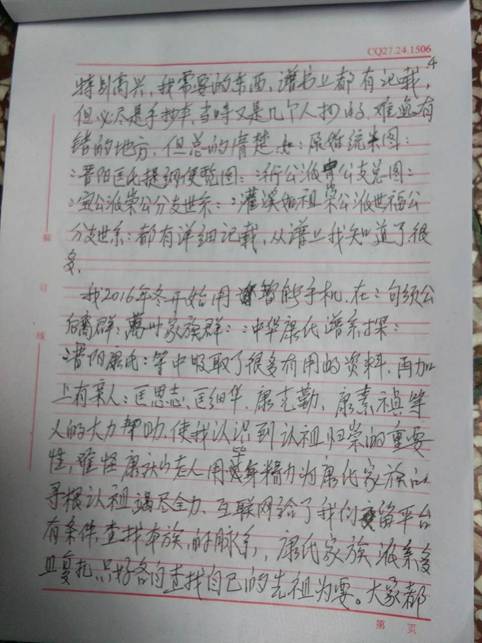 CQ27.24.1506
4
特别高兴,我需要的东西,谱书上都有记载,
但必尽是手抄本,当时又是几个人抄的,难免有
结的地方,但总的清楚,如:原始统系图:
:晋阳匡氏提纲便览图::行公派公支总图:
:宝公派崇公分支世系::灌溪始祖崇公派世福公
分支世系:都有详细记载,从谱上我知道了很
多。
我2016年冬开始用智能手机,在:句须公
后裔群:万叶家族群::中华康氏谱系探:
:晋阳康氏:等中吸取了很多有用的资料,再加
上有亲人:匡思志、匡细华、康克勤、康素祯等
人的大力帮助,使我认识到认祖归宗的重要
性,难怪康氏的老人用毕生精力为康氏家族的
寻根认祖竭尽全力,互联网给了我们平台
有条件查找本族的脉系,康氏家族派系多
且复杂,只好各自查找自己的先祖为要。大家都
第 页